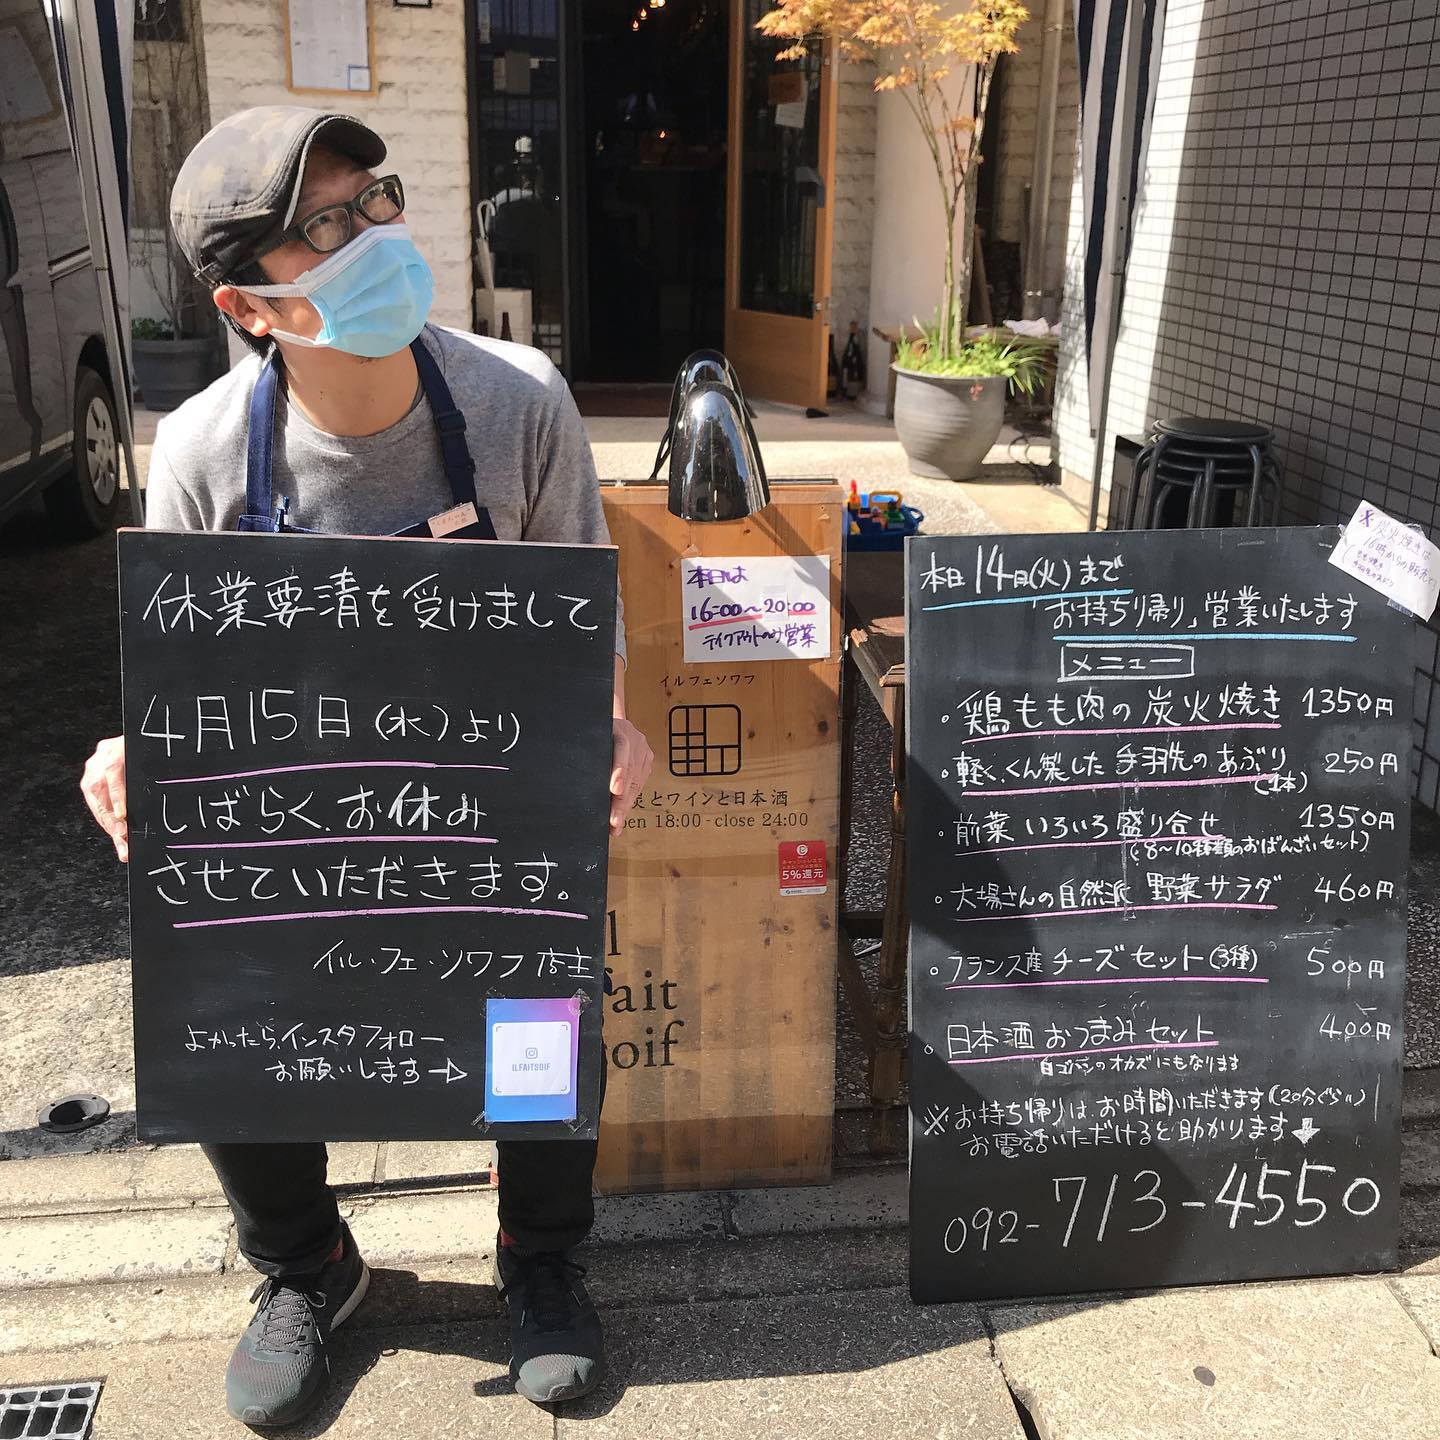 休業要請を受けまして
4月15日(水)より
しばらく、お休み
させていただきます。
イル・フェ・ソワフ 店主
よかったら、インスタフォロー
お願いします→
ILFAITSOIF
本日は
16:00〜20:00
テイクアウトのみ営業
イルフェソワフ
炭とワインと日本酒
pen 18:00 - close 24:00
キャッシュレスで
5%還元
l
fait
soif
本日14日(火)まで
「お持ち帰り」営業いたします
メニュー
・鶏もも肉の炭火焼き 1350円
・軽く、くん製した手羽先のあぶり 250円
(1本)
・前菜いろいろ盛り合せ 1350円
(8〜10種類のおばんざいセット)
・大場さんの自然派 野菜サラダ 460円
・フランス産チーズセット(3種) 500円
・日本酒おつまみセット 400円
白ゴハンのオカズにもなります
※お持ち帰りは、お時間いただきます(20分ぐらい)
お電話いただけると助かります↓
092-713-4550
※炭火焼きは
16時からの販売